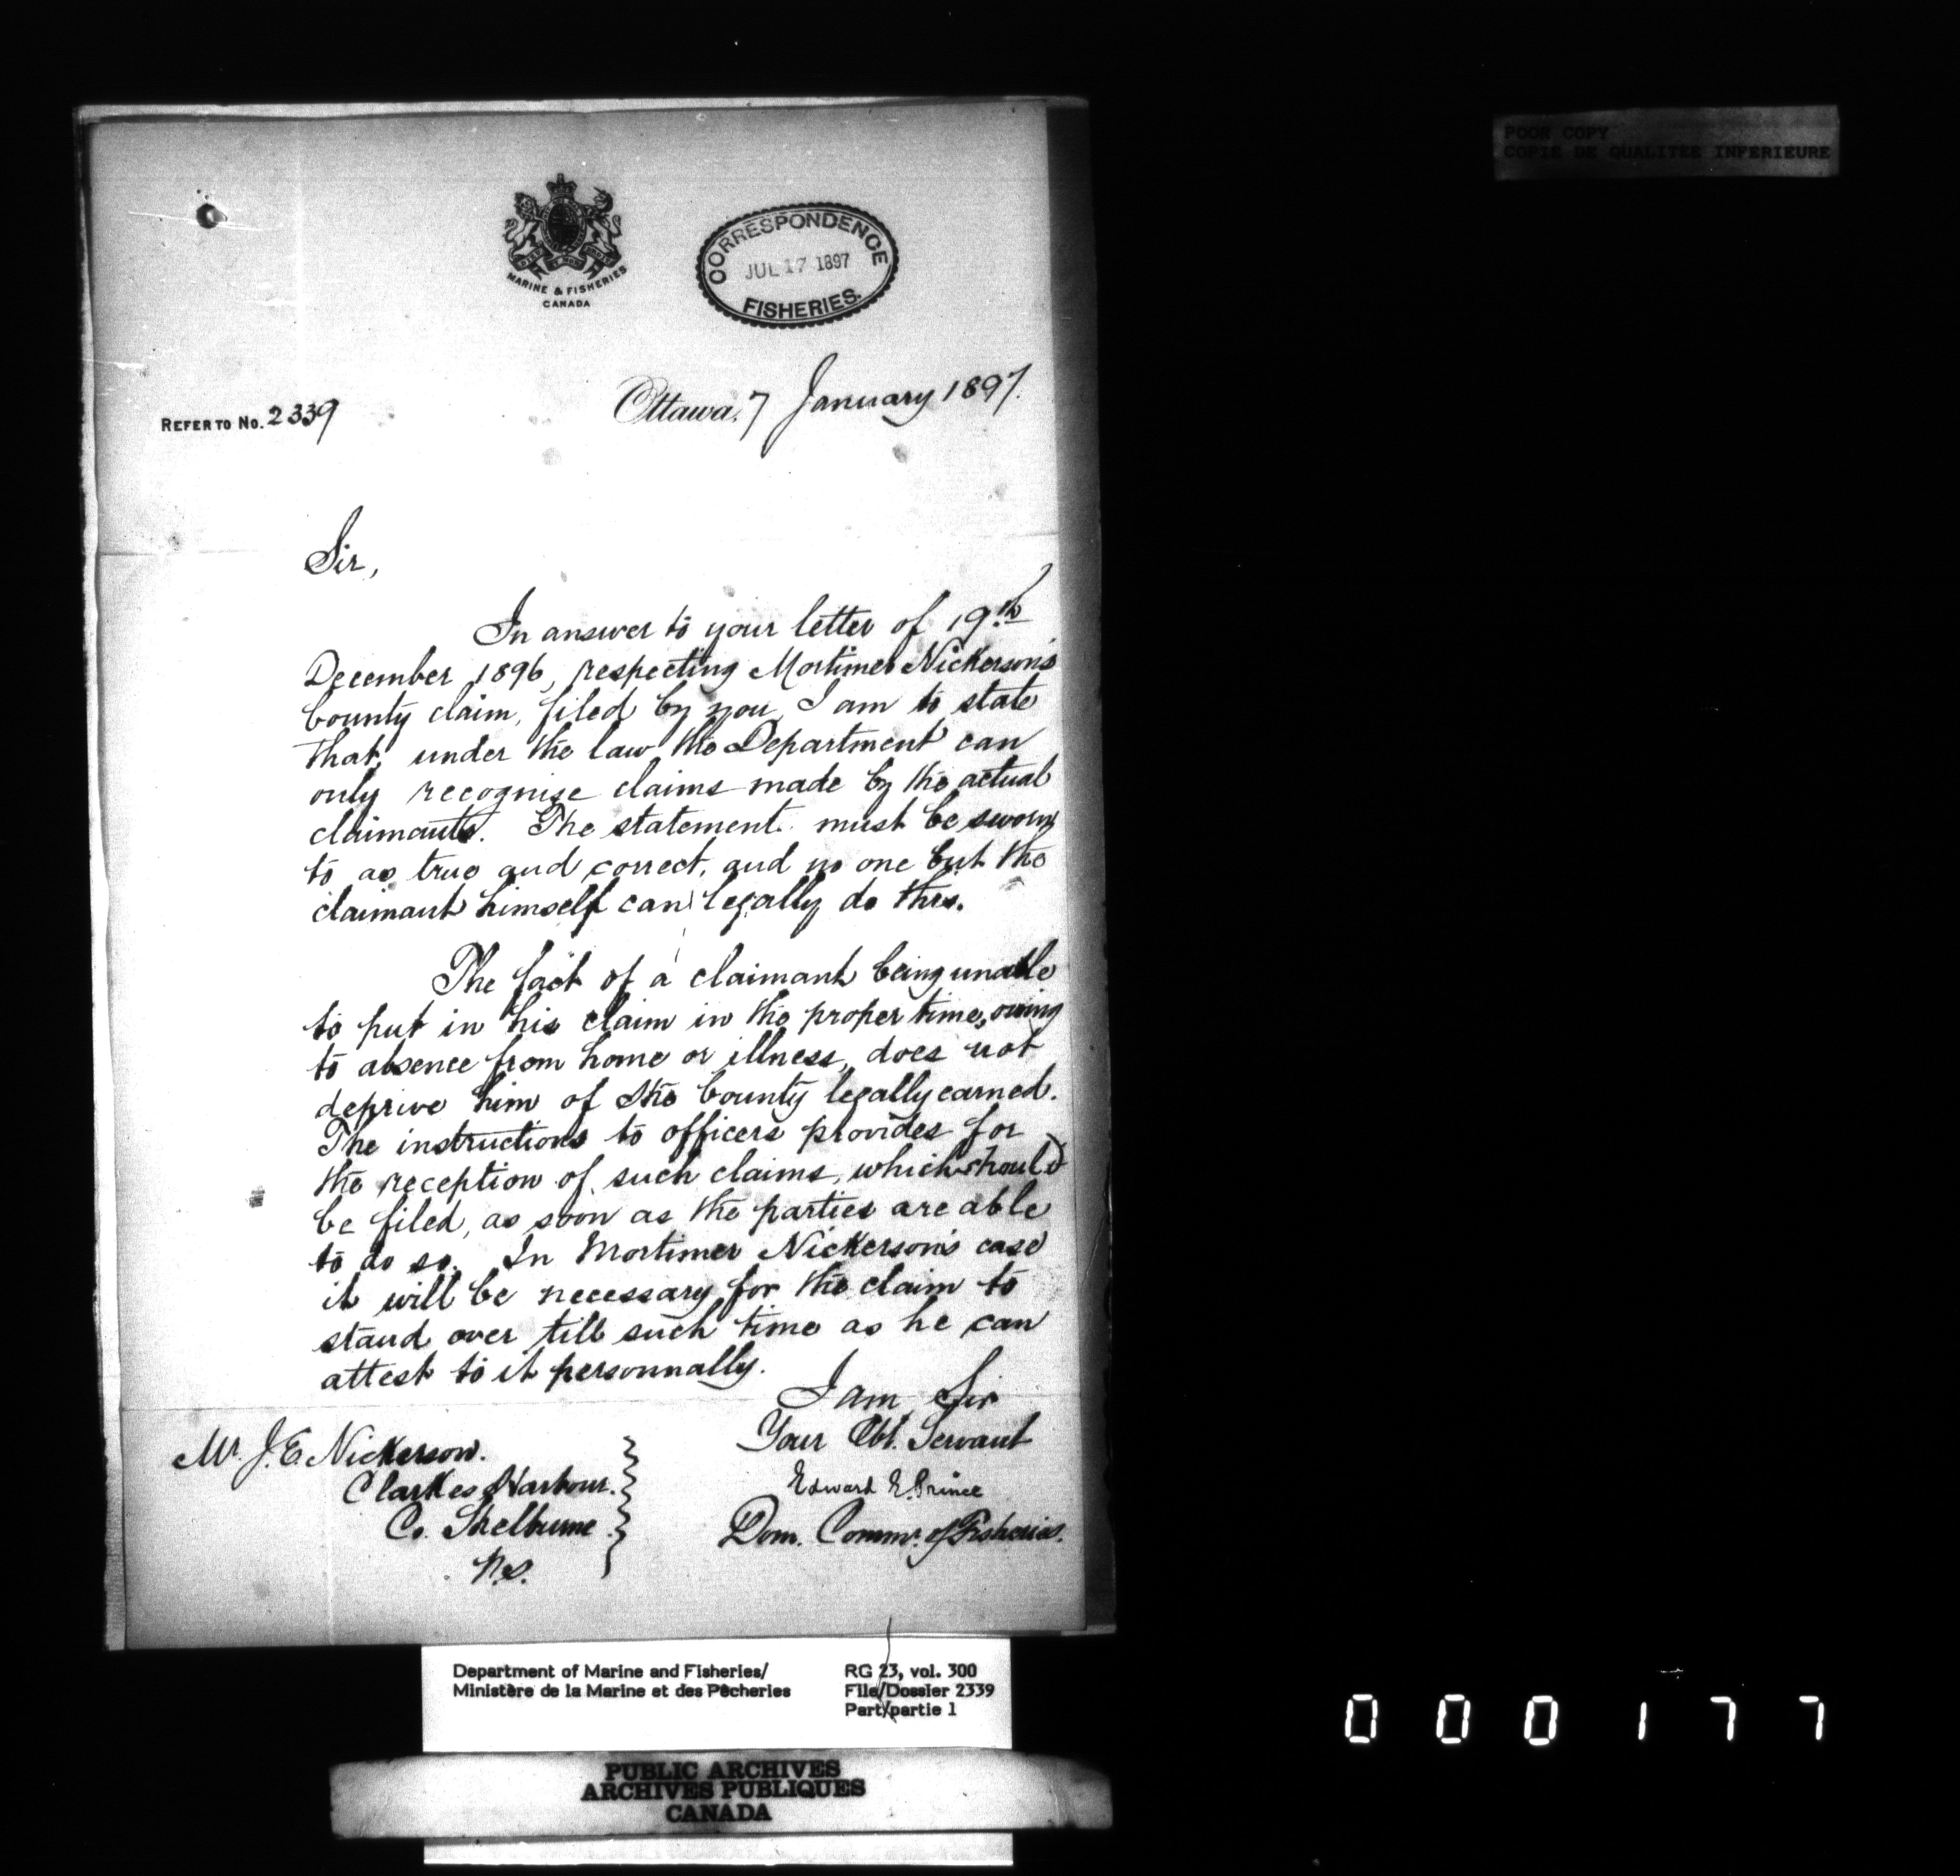 POOR COPY
COPIE DE QUALITEE INFERIEURE
MARINE & FISHERIES
CANADA
CORRESPONDENCE
JUL 17 1897
FISHERIES.
REFER TO No. 2339
Ottawa, 7 January 1897.
Sir,
In answer to your letter of 19th
December 1896, respecting Mortimer Nickerson's
bounty claim, filed by you, I am to state
that, under the law the Department can
only recognise claims made by the actual
claimants. The statement must be sworn
to as true and correct, and no one but the
claimant himself can legally do this.
The fact of a claimant being unable
to put in his claim in the proper time, owing
to absence from home or illness, does not
deprive him of the bounty legally earned.
The instructions to officers provides for
the reception of such claims, which should
be filed, as soon as the parties are able
to do so. In Mortimer Nickerson's case
it will be necessary for the claim to
stand over till such time as he can
attest to it personnally.
I am, Sir
Your Obt. Servant
Edward E. Prince
Dom. Commr. of Fisheries.
Mr. J. E. Nickerson.
Clarkes Harbour.
Co. Shelburne
N.S.
Department of Marine and Fisheries/
Ministère de la Marine et des Pêcheries
RG 23, vol. 300
File/Dossier 2339
Part/partie 1
PUBLIC ARCHIVES
ARCHIVES PUBLIQUES
CANADA
000177